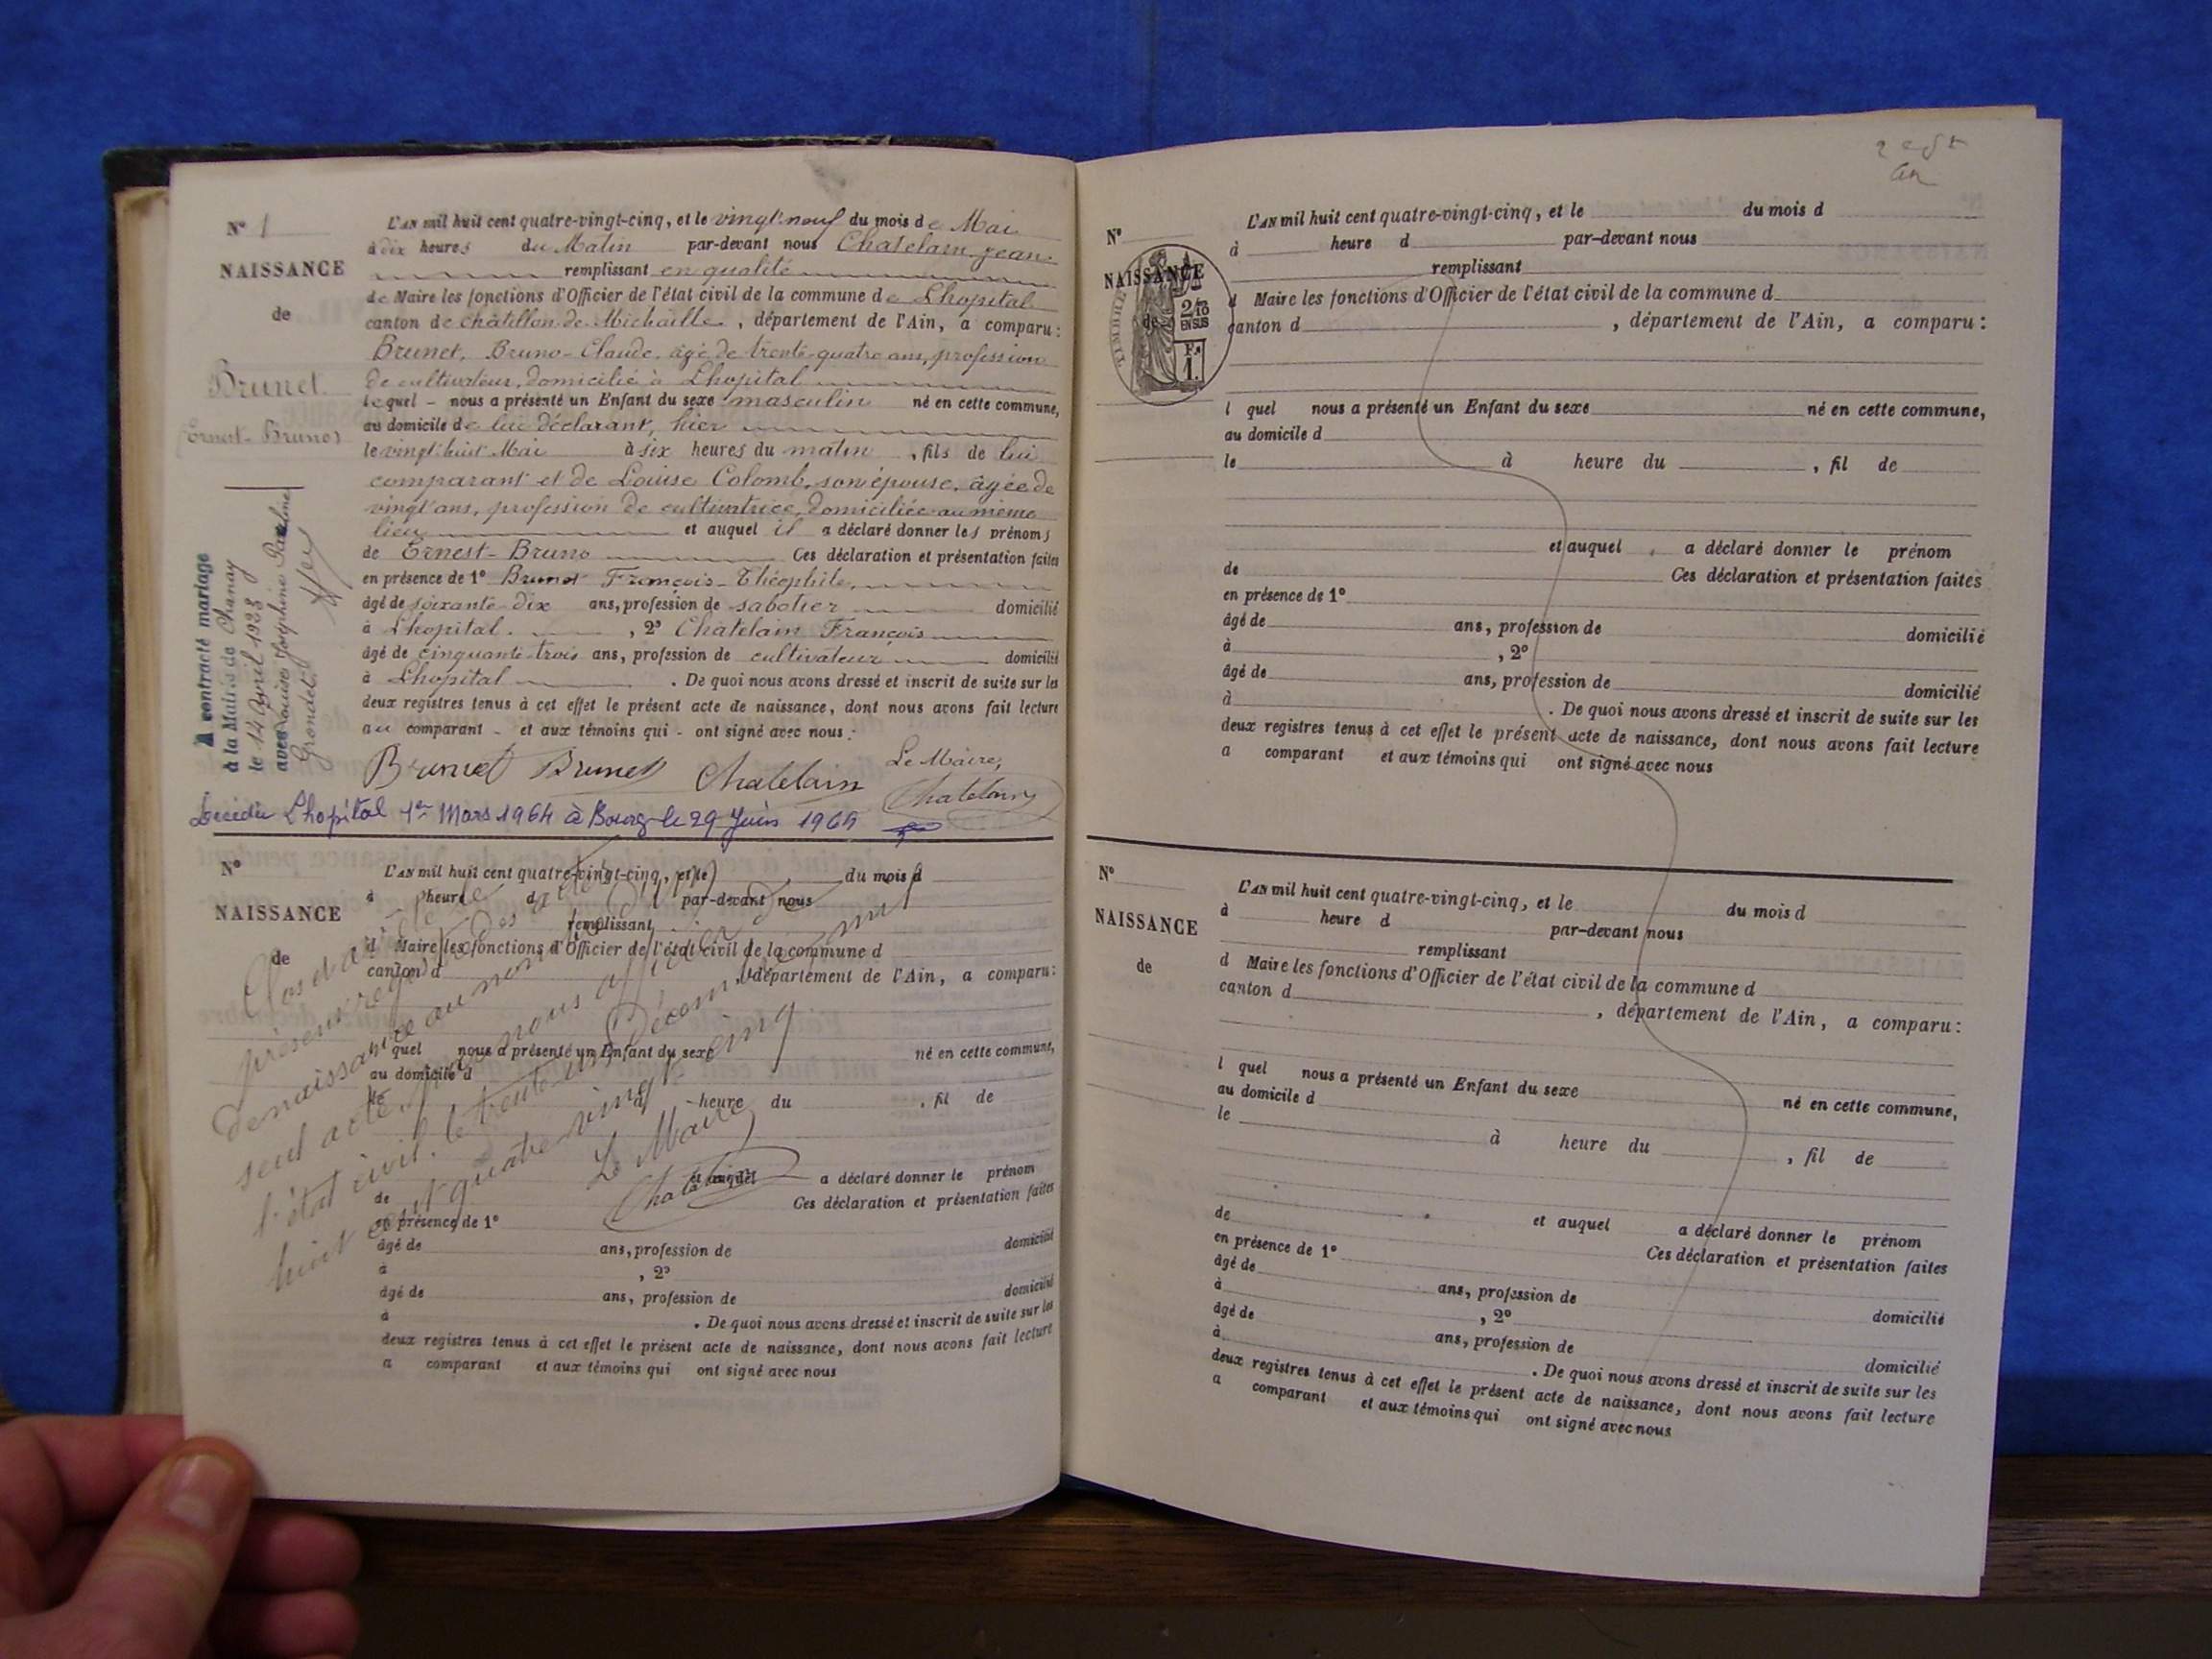 N° 1
NAISSANCE
de
Brunet
(Ernest-Bruno)
L'AN mil huit cent quatre-vingt-cinq, et le vingt-neuf du mois de Mai
à dix heures du Matin par-devant nous Chatelain Jean
remplissant en qualité
de Maire les fonctions d'Officier de l'état civil de la commune de Lhopital
canton de Châtillon de Michaille, département de l'Ain, a comparu:
Brunet, Bruno-Claude, âgé de trente-quatre ans, profession
de cultivateur, domicilié à Lhopital
lequel - nous a présenté un Enfant du sexe masculin né en cette commune,
au domicile de lui déclarant, hier
le vingt-huit Mai à six heures du matin, fils de lui
comparant et de Louise Colomb, son épouse, âgée de
vingt ans, profession de cultivatrice, domiciliée au même
lieu et auquel il a déclaré donner les prénoms
de Ernest-Bruno Ces déclaration et présentation faites
en présence de 1° Brunet François-Théophile,
âgé de soixante-dix ans, profession de sabotier domicilié
à Lhopital, 2° Chatelain François
âgé de cinquante-trois ans, profession de cultivateur domicilié
à Lhopital. De quoi nous avons dressé et inscrit de suite sur les
deux registres tenus à cet effet le présent acte de naissance, dont nous avons fait lecture
au comparant - et aux témoins qui - ont signé avec nous:
Brunet Brunet Chatelain Le Maire,
Chatelain
A contracté mariage
à la Mairie de Chanay
le 14 Avril 1928
avec Louise Joséphine
Grondel
Décédé Lhopital 1er Mars 1964 à Bourg le 29 Juin 1964
N°
NAISSANCE
de
L'AN mil huit cent quatre-vingt-cinq, et le du mois d
à heure d par-devant nous
remplissant
d Maire les fonctions d'Officier de l'état civil de la commune d
canton d , département de l'Ain, a comparu:
l quel nous a présenté un Enfant du sexe né en cette commune,
au domicile d
le à heure du , fil de
et auquel a déclaré donner le prénom
de Ces déclaration et présentation faites
en présence de 1°
âgé de ans, profession de domicilié
à , 2°
âgé de ans, profession de domicilié
à . De quoi nous avons dressé et inscrit de suite sur les
deux registres tenus à cet effet le présent acte de naissance, dont nous avons fait lecture
a comparant et aux témoins qui ont signé avec nous
Clos et le
présent registre des actes
de naissance au nombre d'un
seul acte, par nous officier de
l'état civil, le trente-un Décembre mil
huit cent quatre vingt cinq
Le Maire
Chatelain
N°
NAISSANCE
de
TIMBRE
2/10
EN SUS
1.
L'AN mil huit cent quatre-vingt-cinq, et le du mois d
à heure d par-devant nous
remplissant
d Maire les fonctions d'Officier de l'état civil de la commune d
canton d , département de l'Ain, a comparu:
l quel nous a présenté un Enfant du sexe né en cette commune,
au domicile d
le à heure du , fil de
et auquel a déclaré donner le prénom
de Ces déclaration et présentation faites
en présence de 1°
âgé de ans, profession de domicilié
à , 2°
âgé de ans, profession de domicilié
à . De quoi nous avons dressé et inscrit de suite sur les
deux registres tenus à cet effet le présent acte de naissance, dont nous avons fait lecture
a comparant et aux témoins qui ont signé avec nous
N°
NAISSANCE
de
L'AN mil huit cent quatre-vingt-cinq, et le du mois d
à heure d par-devant nous
remplissant
d Maire les fonctions d'Officier de l'état civil de la commune d
canton d , département de l'Ain, a comparu:
l quel nous a présenté un Enfant du sexe né en cette commune,
au domicile d
le à heure du , fil de
et auquel a déclaré donner le prénom
de Ces déclaration et présentation faites
en présence de 1°
âgé de ans, profession de domicilié
à , 2°
âgé de ans, profession de domicilié
à . De quoi nous avons dressé et inscrit de suite sur les
deux registres tenus à cet effet le présent acte de naissance, dont nous avons fait lecture
a comparant et aux témoins qui ont signé avec nous